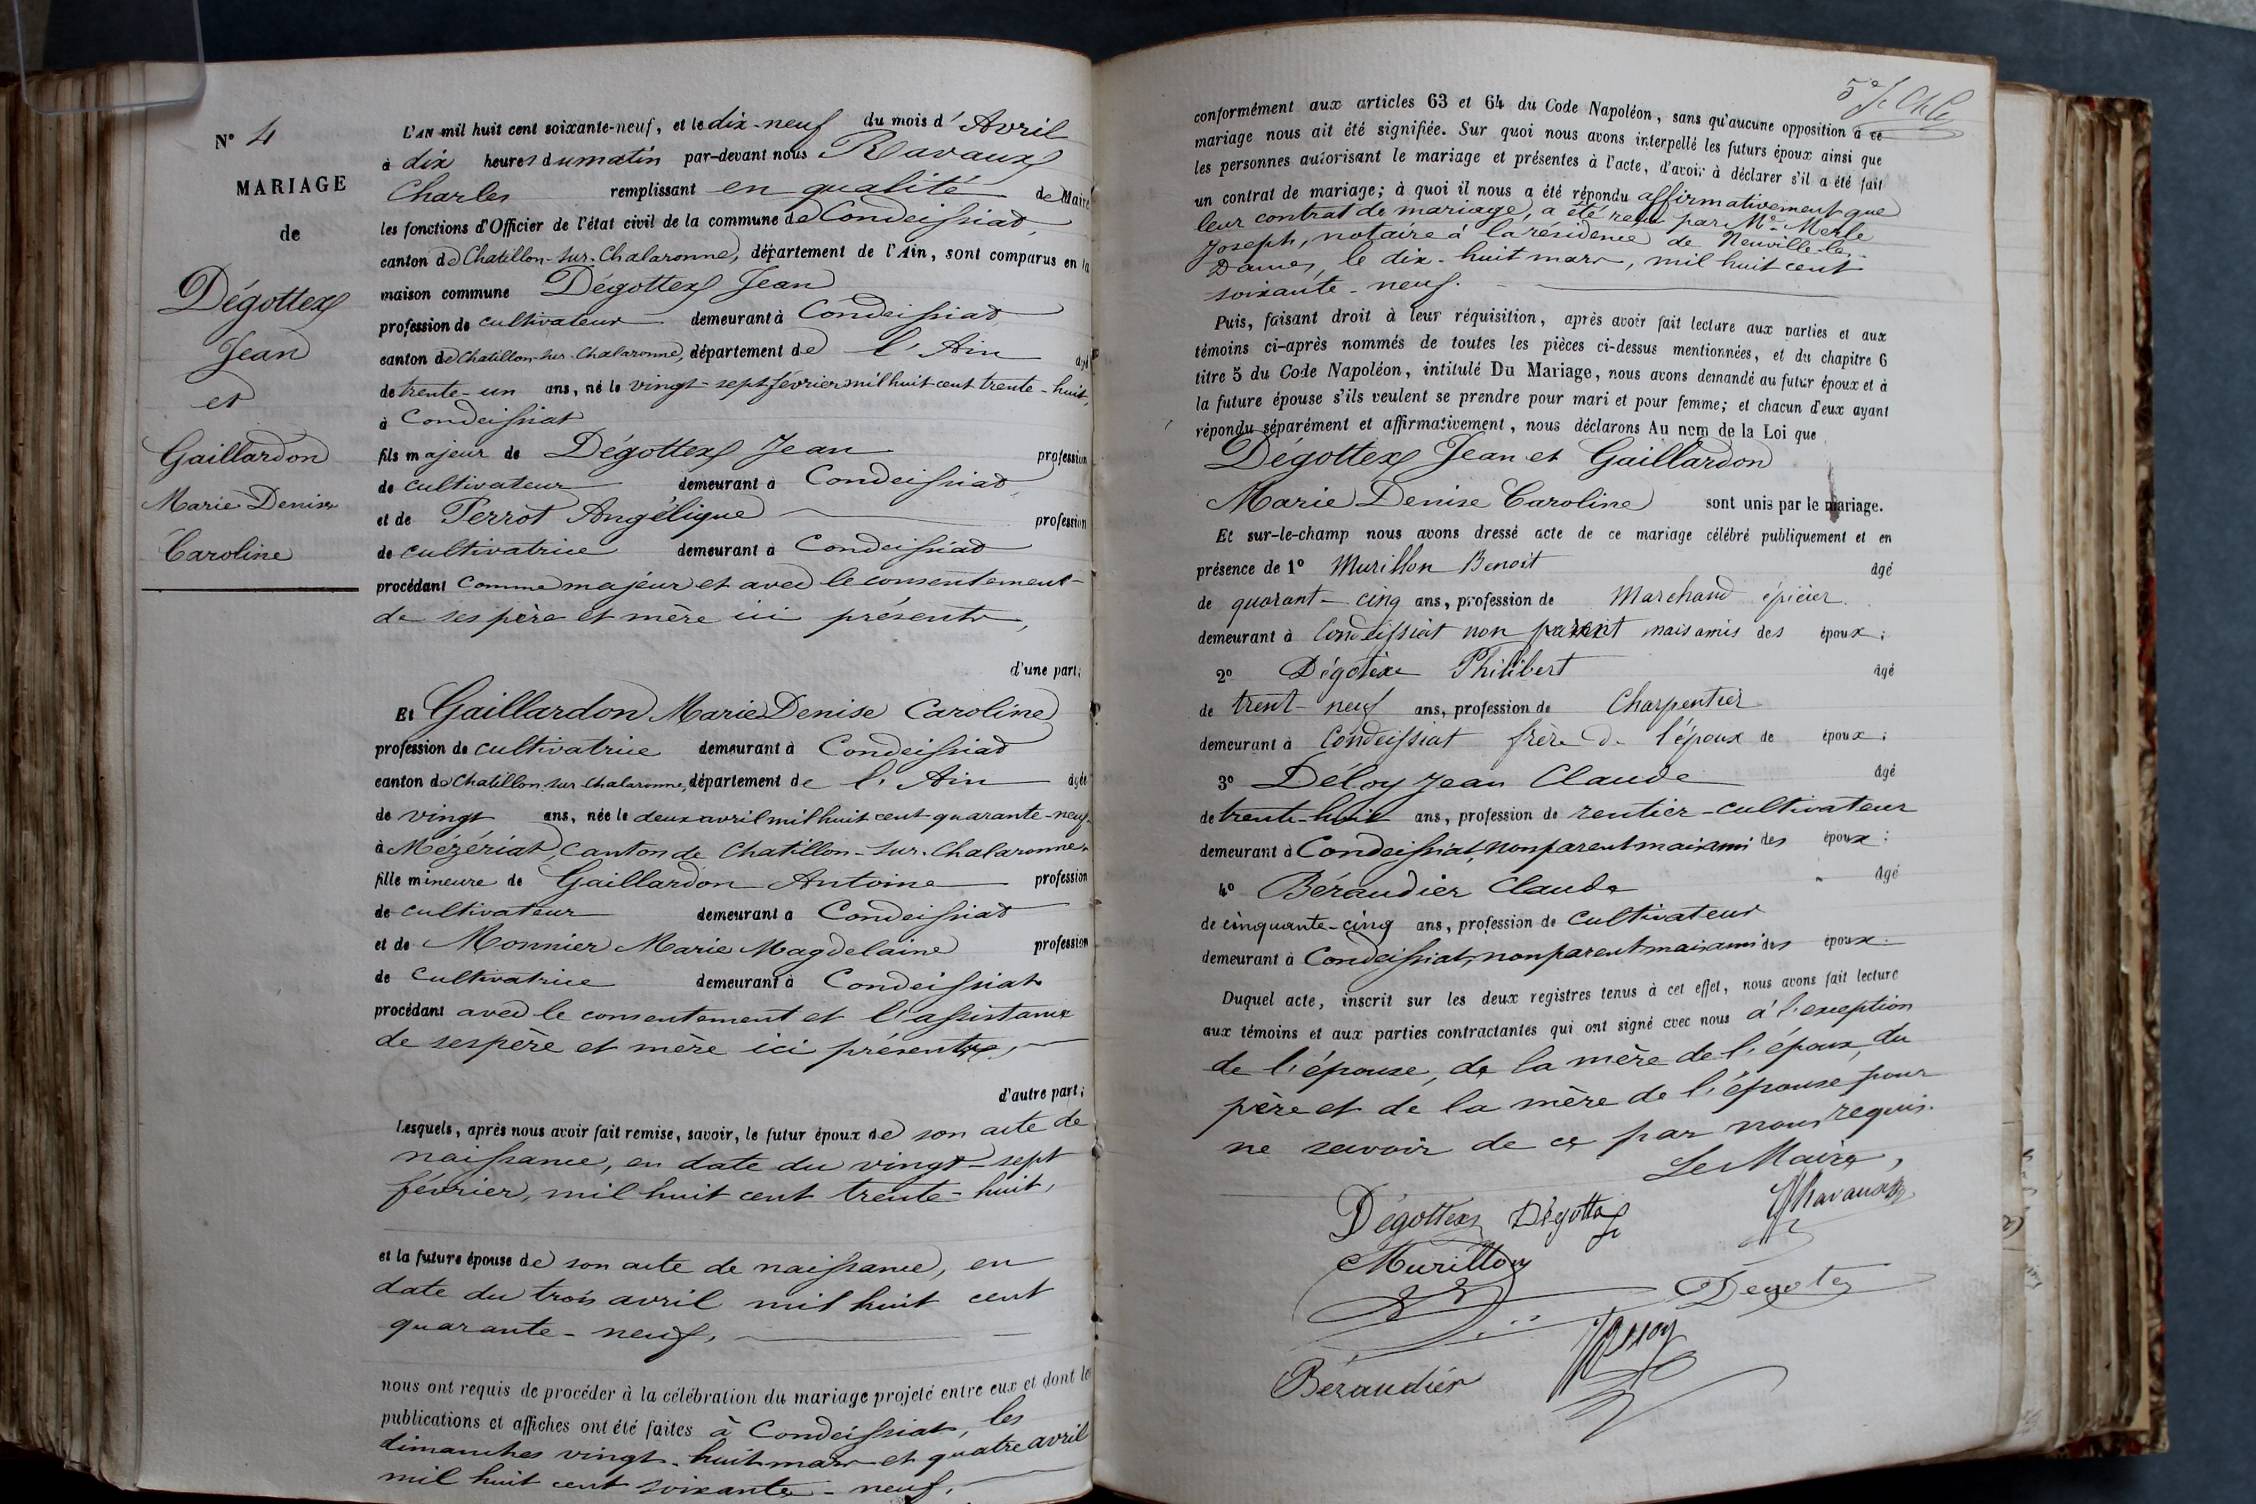 N° 4
MARIAGE
de
Dégottex
Jean
et
Gaillardon
Marie Denise
Caroline
L'AN mil huit cent soixante-neuf, et le dix-neuf du mois d'Avril
à dix heures du matin par-devant nous Ravaux
Charles remplissant en qualité de Maire
les fonctions d'Officier de l'état civil de la commune de Condeissiat,
canton de Chatillon-sur-Chalaronne, département de l'Ain, sont comparus en la
maison commune Dégottex Jean
profession de cultivateur demeurant à Condeissiat
canton de Chatillon-sur-Chalaronne, département de l'Ain âgé
de trente-un ans, né le vingt-sept février mil huit cent trente-huit,
à Condeissiat
fils majeur de Dégottex Jean profession
de cultivateur demeurant à Condeissiat,
et de Perrot Angélique profession
de cultivatrice demeurant à Condeissiat
procédant comme majeur et avec le consentement
de ses père et mère ici présents,
d'une part;
Et Gaillardon Marie Denise Caroline
profession de cultivatrice demeurant à Condeissiat
canton de Chatillon-sur-Chalaronne, département de l'Ain âgée
de vingt ans, née le deux avril mil huit cent quarante-neuf
à Mézériat, Canton de Chatillon-sur-Chalaronne
fille mineure de Gaillardon Antoine profession
de cultivateur demeurant à Condeissiat
et de Monnier Marie Magdelaine profession
de cultivatrice demeurant à Condeissiat
procédant avec le consentement et l'assistance
de ses père et mère ici présents,
d'autre part;
Lesquels, après nous avoir fait remise, savoir, le futur époux de son acte de
naissance, en date du vingt-sept
février, mil huit cent trente-huit,
et la future épouse de son acte de naissance, en
date du trois avril mil huit cent
quarante-neuf,
nous ont requis de procéder à la célébration du mariage projeté entre eux et dont les
publications et affiches ont été faites à Condeissiat, les
dimanches vingt-huit mars et quatre avril
mil huit cent soixante-neuf,
5e
conformément aux articles 63 et 64 du Code Napoléon, sans qu'aucune opposition à ce
mariage nous ait été signifiée. Sur quoi nous avons interpellé les futurs époux ainsi que
les personnes autorisant le mariage et présentes à l'acte, d'avoir à déclarer s'il a été fait
un contrat de mariage; à quoi il nous a été répondu affirmativement que
leur contrat de mariage, a été reçu par Me Merle
Joseph, notaire à la résidence de Neuville-les-
Dames, le dix-huit mars, mil huit cent
soixante-neuf.
Puis, faisant droit à leur réquisition, après avoir fait lecture aux parties et aux
témoins ci-après nommés de toutes les pièces ci-dessus mentionnées, et du chapitre 6
titre 5 du Code Napoléon, intitulé Du Mariage, nous avons demandé au futur époux et à
la future épouse s'ils veulent se prendre pour mari et pour femme; et chacun d'eux ayant
répondu séparément et affirmativement, nous déclarons Au nom de la Loi que
Dégottex Jean et Gaillardon
Marie Denise Caroline sont unis par le mariage.
Et sur-le-champ nous avons dressé acte de ce mariage célébré publiquement et en
présence de 1° Murillon Benoit âgé
de quarant-cinq ans, profession de Marchand épicier.
demeurant à Condeissiat non parent mais amis des époux;
2° Dégotex Philibert âgé
de trent-neuf ans, profession de Charpentier
demeurant à Condeissiat frère de l'époux de époux;
3° Déloy Jean Claude âgé
de trente-huit ans, profession de rentier-cultivateur
demeurant à Condeissiat, non parent mais ami des époux;
4° Béraudier Claude âgé
de cinquante-cinq ans, profession de Cultivateur
demeurant à Condeissiat, non parent mais ami des époux.
Duquel acte, inscrit sur les deux registres tenus à cet effet, nous avons fait lecture
aux témoins et aux parties contractantes qui ont signé avec nous à l'exception
de l'épouse, de la mère de l'époux, du
père et de la mère de l'épouse pour
ne savoir de ce par nous requis.
Le Maire,
Dégottex Dégottex Ravaux
Murillon
Degotex
Béraudier